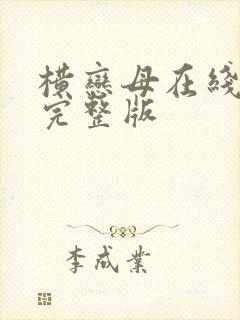 横恋母在綫
完整版
李成業